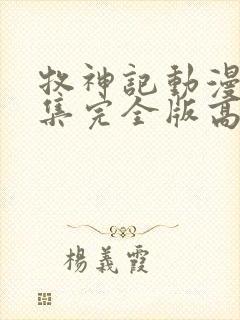 牧神記動漫
集完全版高
楊義霞